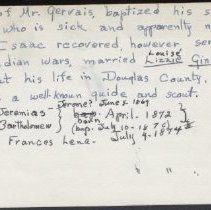 of Mr. Gervais, baptized his s
who is sick and apparently n
Isaac recovered, however ser
Louise
dian wars, married Lizzie Gin
t his life in Douglas County.
a well-known guide and scout.
Jerome? June 8. 1869
Jeremias born April. 1872
Bartholomew bap. July 10-1870
Frances Lena. July 9-1874